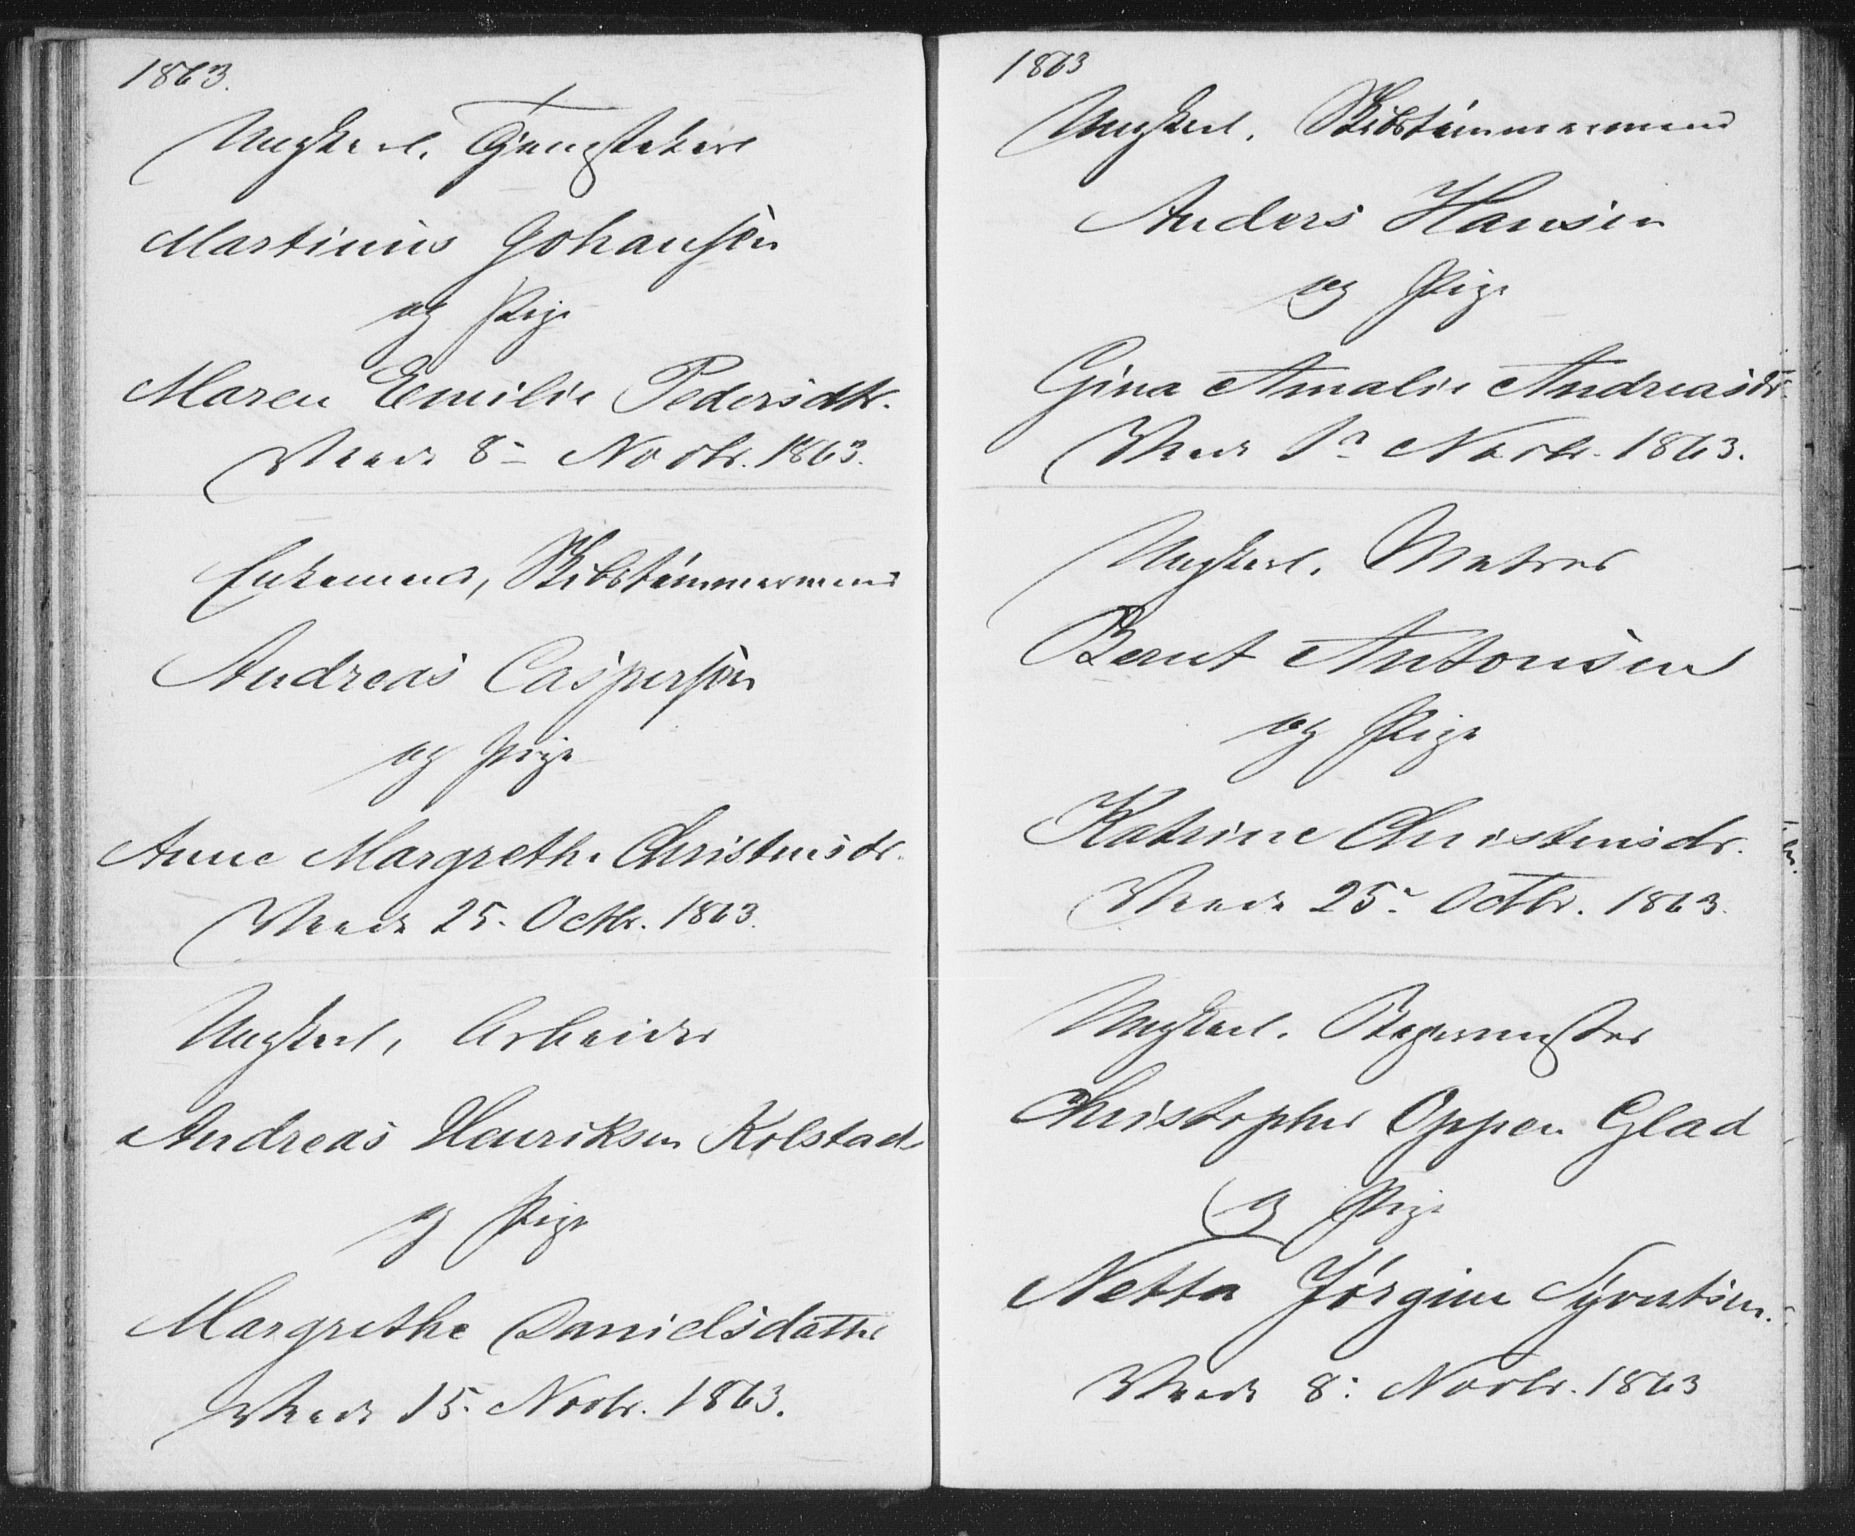 1863.
Ungkarl, Tjenestekarl
Martinius Johansen
og Pige
Maren Emilie Pedersdtr.
Viede 8- Novbr. 1863.
Enkemand, Skibstømmermand
Andreas Caspersen
og Pige
Anne Margrethe Christensdr.
Viede 25. Octbr. 1863.
Ungkarl, Arbeider
Andreas Henriksen Kolstad
og Pige
Margrethe Danielsdatter
Viede 15. Novbr. 1863.
1863
Ungkarl. Skibstømmermand
Anders Hansen
og Pige
Gina Amalie Andreasdr.
Viede 1- Novbr. 1863.
Ungkarl. Matros
Bernt Antonsen
og Pige
Katrine Christensdr.
Viede 25- Octbr. 1863.
Ungkarl. Bagermester
Christopher Oppen Glad
og Pige
Netta Jørgine Syvertsen.
Viede 8: Novbr. 1863